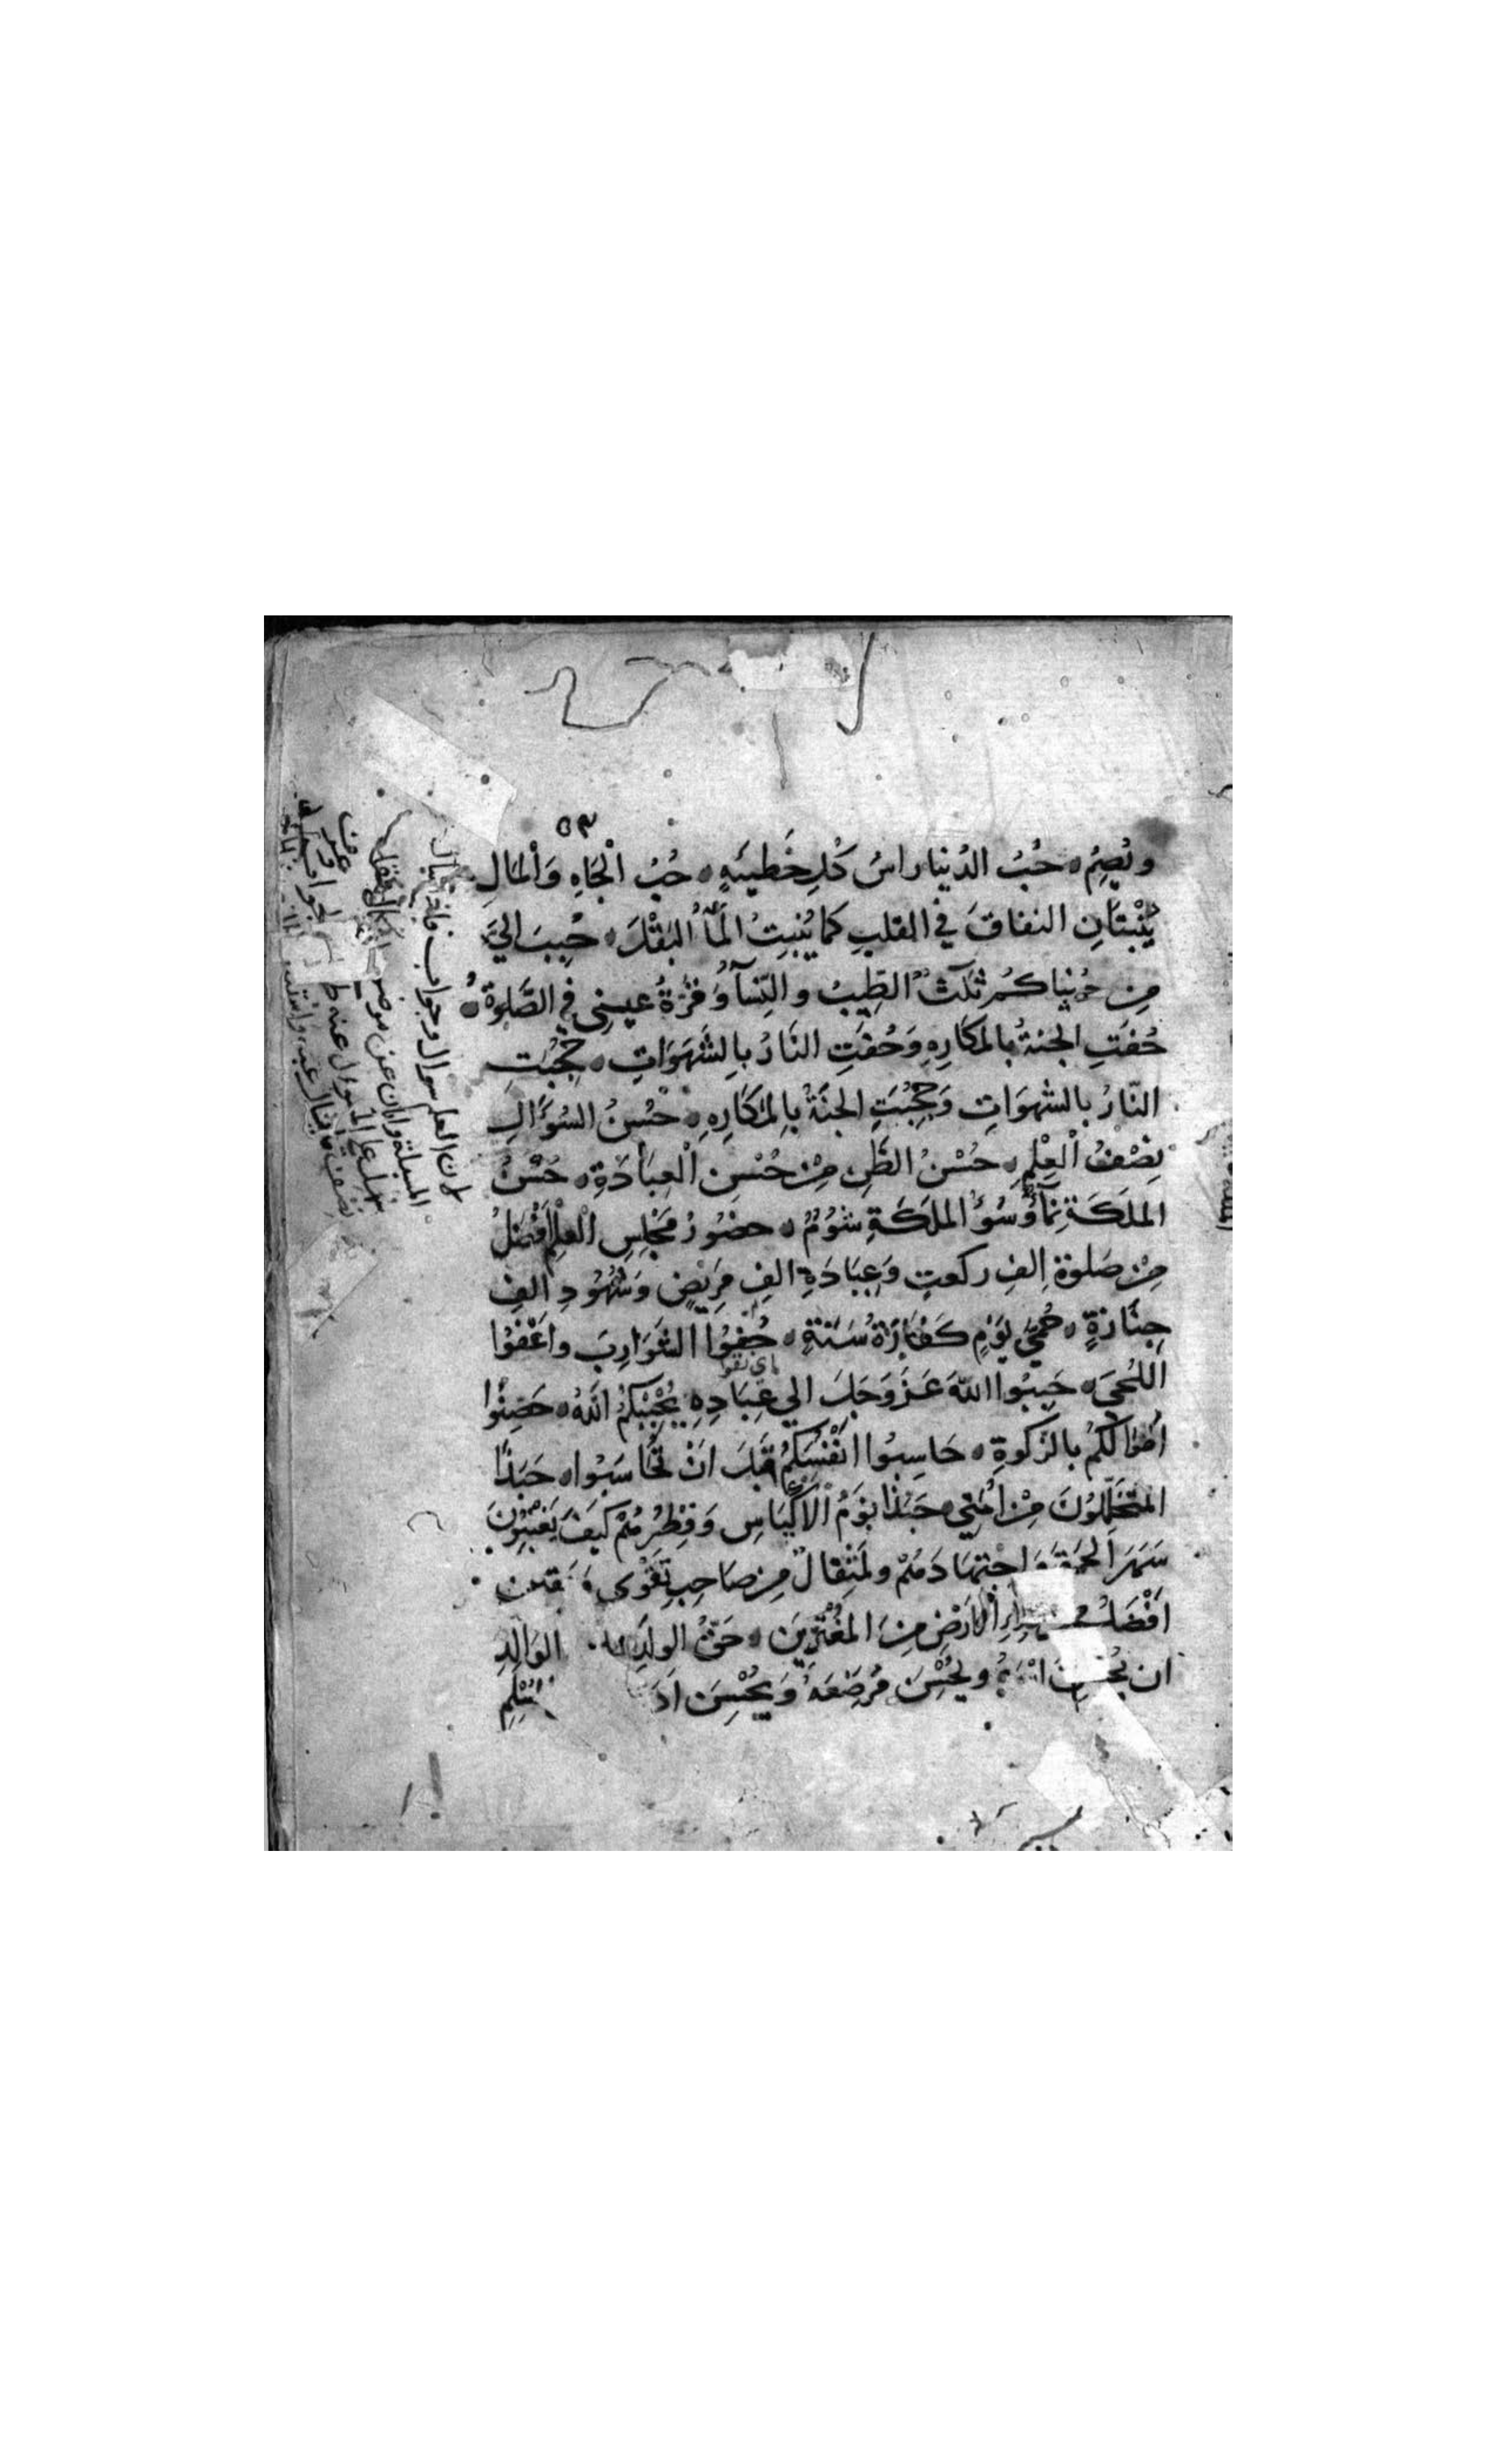 ٥٣
ويُصِمُّ ه حُبُّ الدُنيا راسُ كُلِ خَطيئَةٍ ه حُبُّ الْجَاهِ وَالْمَالِ
يُنْبتَانِ النفاقَ في القلبِ كما يُنبِتُ الْمَآءُ البَقْلَ ه حُبِبَ اليَّ
مِن دُنياكُم ثلٰثٌ الطِيبُ والنِسآءُ وَقُرَّةُ عيني في الصَّلوةِ ه
حُفَتِ الجنةُ بالمَكَارِهِ وَحُفَتِ النَارُ بِالشَهَوَاتِ ه حُجِبَتِ
النّارُ بالشهوَاتِ وَحُجِبَتِ الجنَةُ بِالمكَارِهِ ه حُسْنُ السُؤَالِ
نِصْفُ الْعِلْمِ ه حُسْنُ الظَنِ مِنْ حُسْنِ الْعِبَادَةِ ه حُسْنُ
الملَكَةِ نمآءٌ وَسُوءُ الملَكَةِ شُومٌ ه حضُورُ مَجْلِسِ الْعِلْمِ اَفْضَلُ
مِنْ صَلوةِ الفِ ركعتٍ وَعِيَادَةِ الفِ مَرِيْضٍ وَشُهُودِ الفِ
جِنَازةٍ ه حُمّٰى يَوْمٍ كَفَارَةُ سَنَةٍ ه حُفوُا الشَوَارِبَ واعْفوُا
اللُحىَ ه حَبِبُوا اللّهَ عَزَ وَجَلَ الي عِبَادِهِ يُحْبِبْكُمُ اللّهُ ه حَصِنُوا
اَمْوَالَكُمْ بالزَكوةِ ه حَاسِبُوا انْفُسَكُمْ قَبلَ انْ تُحَاسَبُوا ه حَبَذَا
المتَخَلِلُونَ مِنْ اُمَتِي ه حَبَذَا نَوْمُ الْاَكْيَاسِ وَفِطْرُهُمْ كَيفَ يَغْبِنُونَ
سَهَرَ الحَمقَى وَاجْتهَادَهُمْ ولَمِثقالٌ مِن صَاحِبِ تَقْوَى
اَفْضَلُ الْاَرْضِ مِنَ المُغْتَرِينَ ه حَقُ الولَدِ الوَالِدِ
ان يُحْسِنَ اسْمَهُ ويُحْسِنَ مُرضِعَهُ وَيُحْسِنَ اَدَ
اي نقوا
لان العلم سوال وجواب فاذا
المسئلة وان عن موضع
سهل على المسؤل عنه
الجواب